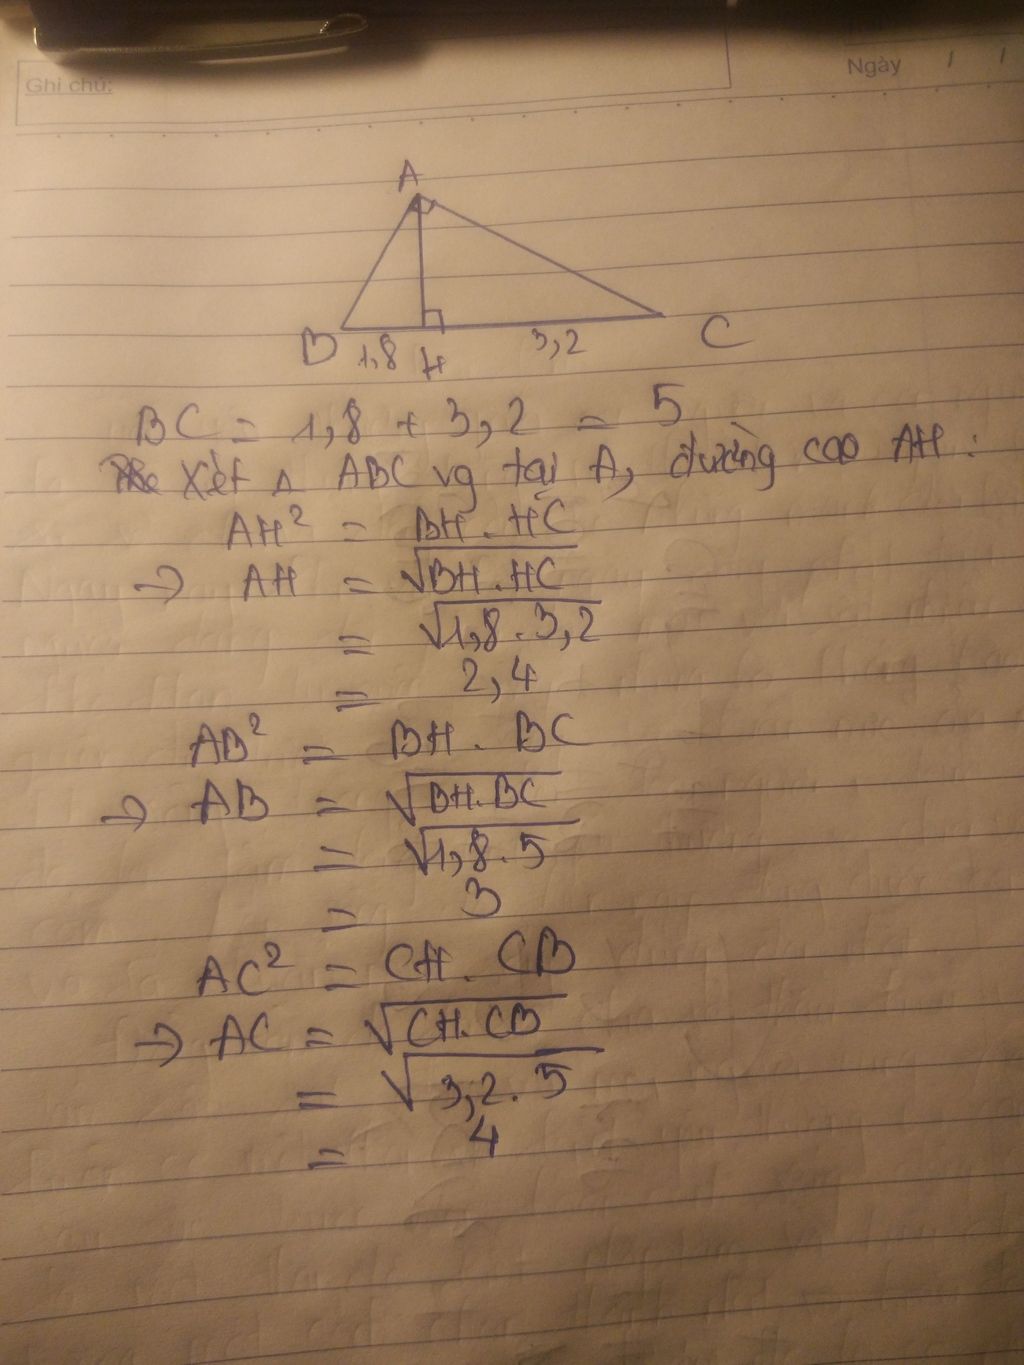 Ghi chú:
Ngày / /
A
B 1,8 H 3,2 C
BC = 1,8 + 3,2 = 5
Xét Δ ABC vg tại A, đường cao AH :
AH² = BH . HC
→ AH = √BH . HC
= √1,8 . 3,2
= 2,4
AB² = BH . BC
→ AB = √BH . BC
= √1,8 . 5
= 3
AC² = CH . CB
→ AC = √CH . CB
= √3,2 . 5
= 4